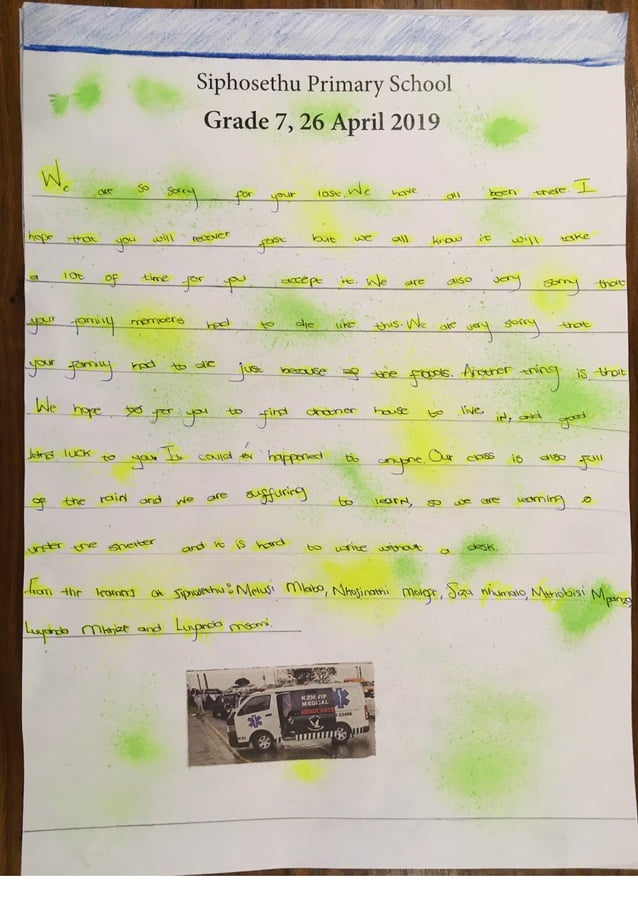 Siphosethu Primary School
Grade 7, 26 April 2019
We are so sorry for your lost. We have all been there. I
hope that you will recover fast but we all know it will take
a lot of time for you accept it. We are also very sorry that
your family members had to die like this. We are very sorry that
your family had to die just because of the floods. Another thing is that
We hope for you to find another house to live in, and good
luck to you. It could happened to anyone. Our class is also full
of the rain and we are suffuring to learn, so we are learning
under the shelter and it is hard to write without a desk.
from the learners at Siphosethu: Melusi Mlabo, Nkosinathi Molefe, Siza Khumalo, Mthobisi
Luyanda Mkhize and Luyanda msomi.
KZN VIP
MEDICAL
AMBULANCE